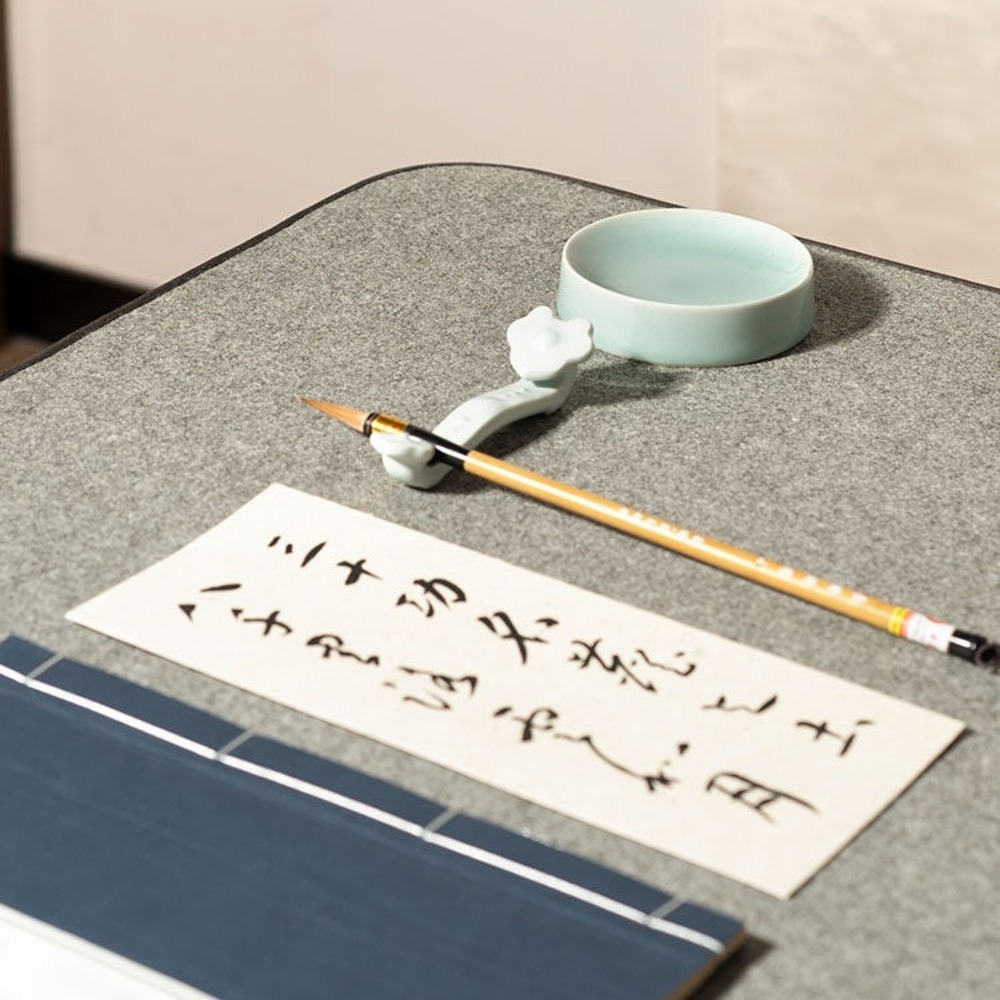 三十功名塵与土
八千里路雲和月